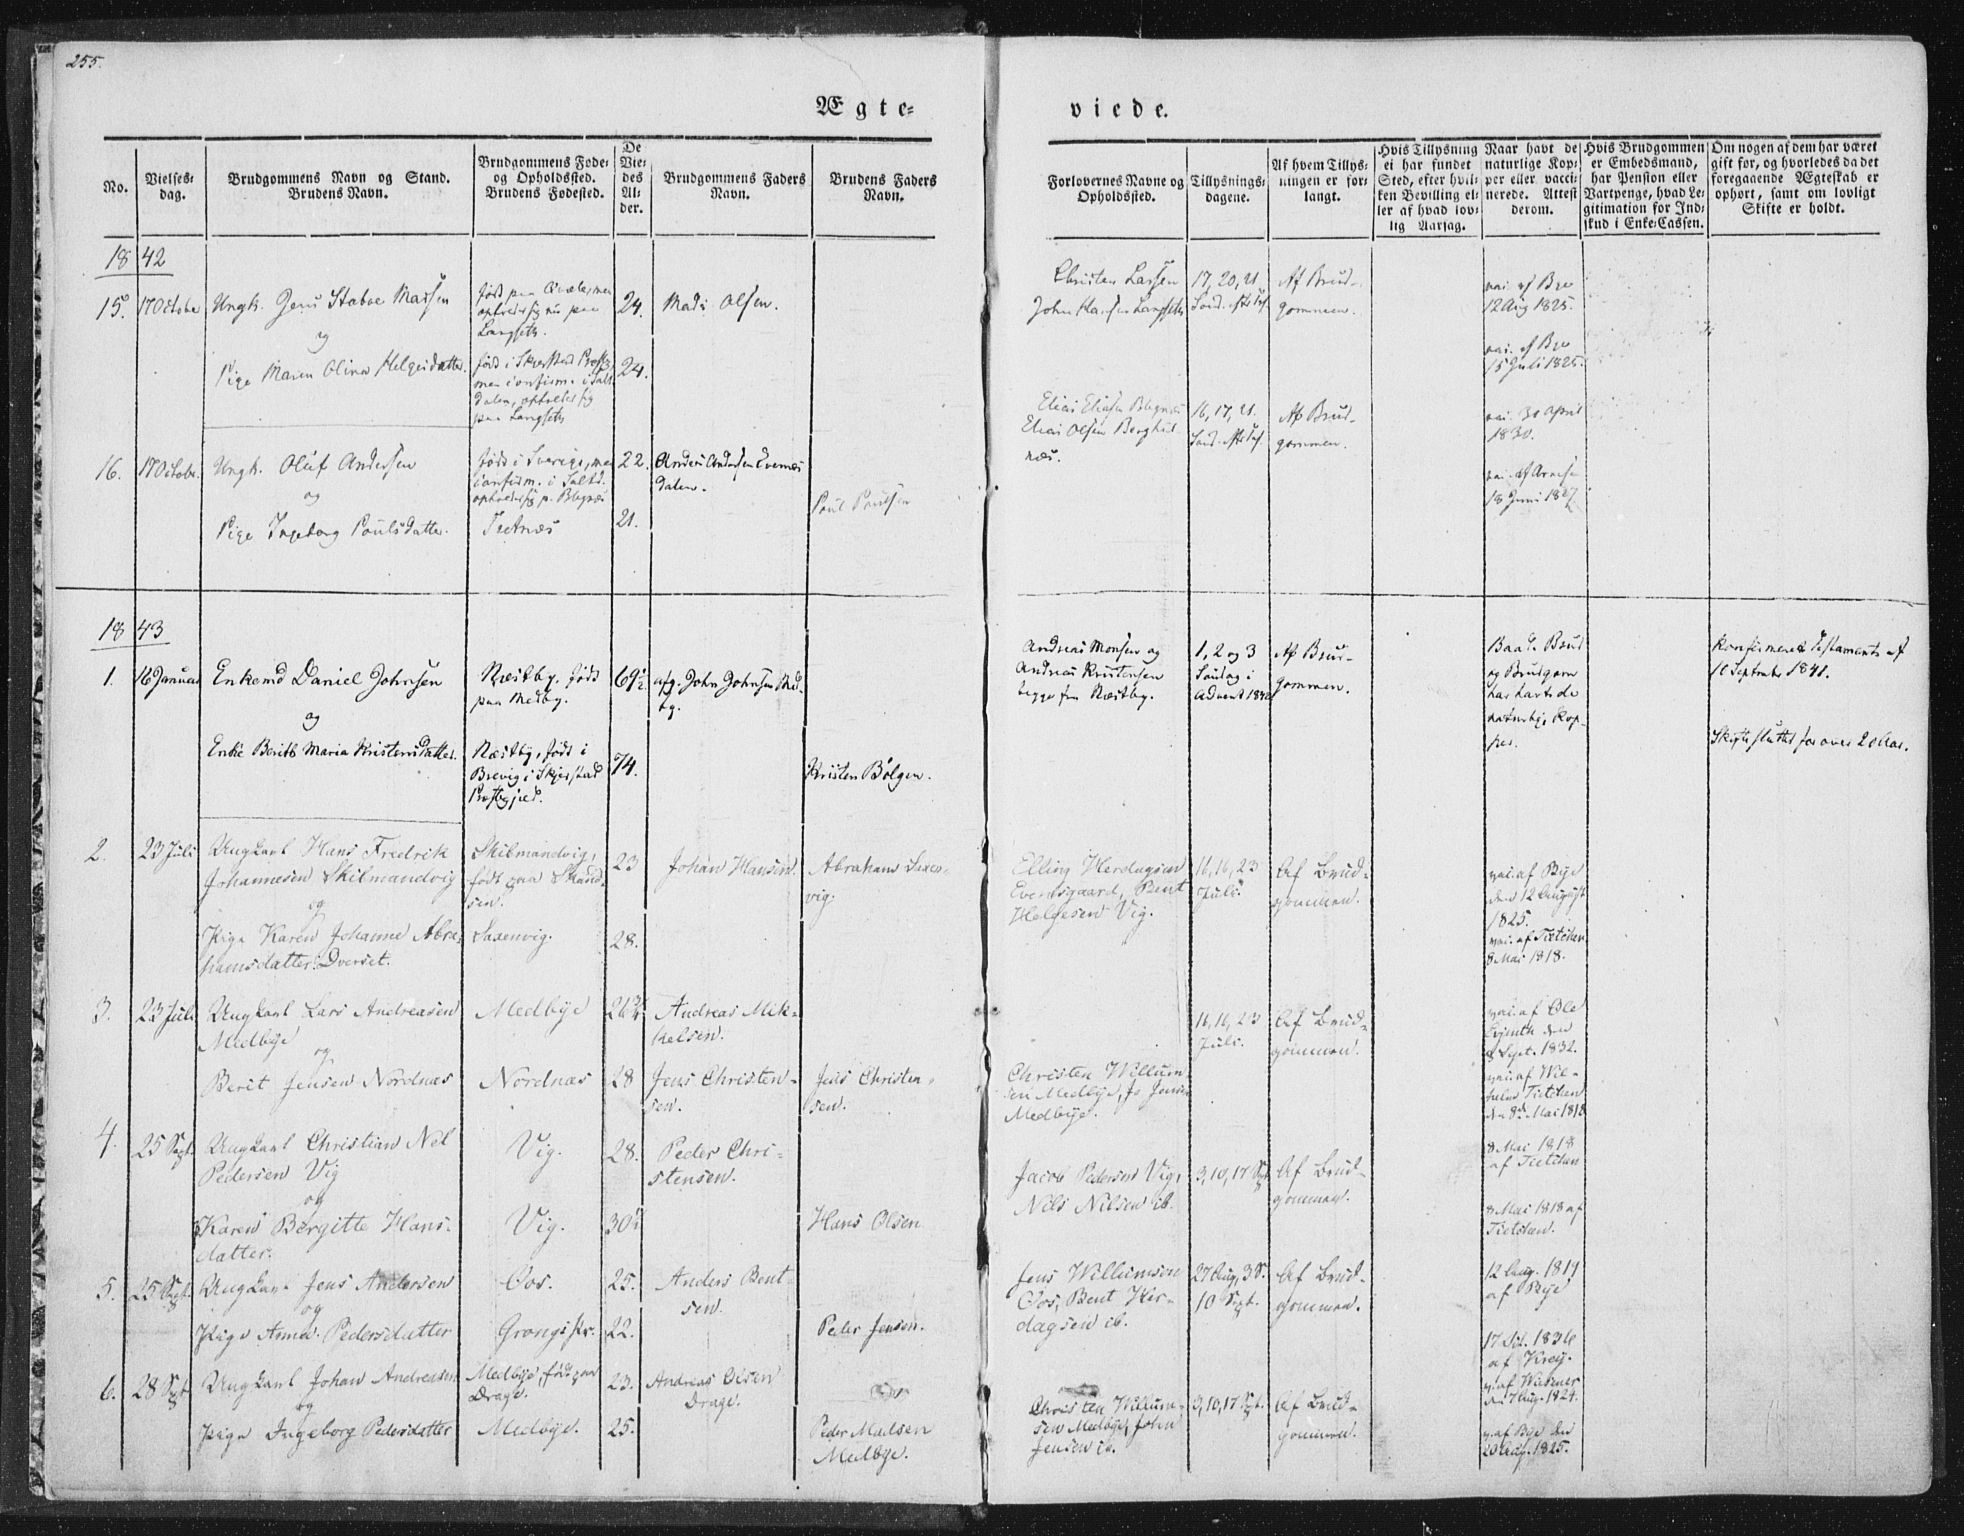 255.
Ægte=
viede.
No.
Vielses=
dag.
Brudgommens Navn og Stand.
Brudens Navn.
Brudgommens Føde=
og Opholdssted.
Brudens Fødested.
De
Vie=
des
Al=
der.
Brudgommens Faders
Navn.
Brudens Faders
Navn.
Forlovernes Navne og
Opholdssted.
Tillysnings=
dagene.
Af hvem Tillys=
ningen er for=
langt.
Hvis Tillysning
ei har fundet
Sted, efter hvil=
ken Bevilling el=
ler af hvad lov=
lig Aarsag.
Naar havt de
naturlige Kop=
per eller vacci=
nerede. Attest
derom.
Hvis Brudgommen
er Embedsmand,
har Pension eller
Vartpenge, hvad Le=
gitimation for Ind=
skud i Enke=Cassen.
Om nogen af dem har været
gift før, og hvorledes da det
foregaaende Ægteskab er
ophørt, samt om lovligt
Skifte er holdt.
1842
15.
17 Octobr
Ungk. Jens Madsen
og
Pige Maren Olina Helgesdatter
24.
24.
Mads Olsen.
Christen Larsen
John Hansen Langseth
17, 20, 21
Af Brud-
gommen.
vac. af Bye
12 Aug 1825.
vac. af Bye
15 Juli 1825.
16.
17 Octobr.
Ungk. Oluf Andersen
og
Pige Ingeborg Poulsdatter
født i Sverige, men
confirm. i Saltd.
22.
21.
Anders Andersen
dalen.
Poul Poulsen
Elias Olsen
næs.
16, 17, 21.
Af Brud-
gommen.
vac. 30 April
1830.
18 Juni 1827
1843
1.
16 Januar
Enkemd Daniel Johnsen
og
Enke Berith Maria Kristensdatter.
Næstby, født
paa Medby.
Næstby, født i
Brevig i Skjerstad
Præstegjæld.
69½
74.
afg. John Johnsen Med-
by.
Kristen Bólgen.
Andreas Monsen og
Andreas Kristensen
begge fra Næstby.
1, 2 og 3
Søndag i
Advent 1842
Af Brud-
gommen.
Baade Brud
og Brudgom
har havt de
naturlig. Kop-
per.
Konfirmeret Testamente af
10 September 1841.
Skifte sluttet for over 20 Aar.
2.
23 Juli
Ungkarl Hans Fredrik
Johannesen Skibmandvig
og
Pige Karen Johanne Abra-
hamsdatter Dverset.
Skibmandvig,
født paa Skand-
sen.
Saxenvig.
23
28.
Johan Hansen.
Abraham Saxen-
vig.
Elling Herdagsen
Evensgaard, Bent
Helgesen Vig.
16, 16, 23
Juli.
Af Brud-
gommen.
vac. af Bye
den 12 August
1825.
vac. af Tietchen
8 Mai 1818.
3.
23 Juli
Ungkarl Lars Andreasen
Medbye
og
Berit Jensen Nordnæs
Medbye
Nordnæs
26¾
28
Andreas Mik-
kelsen.
Jens Christen-
sen.
Jens Christen-
sen.
Christen Willum-
sen Medbye, Jo Jensen
Medbye.
16, 16, 23
Juli.
Af Brud-
gommen.
vac. af Ole
den
8 Sept. 1832.
vac. af Wil-
helm Tietchen
den 8de Mai 1818
4.
25 Sept.
Ungkarl Christian Nel
Pedersen Vig
og
Karen Bergitte Hans-
datter.
Vig.
Vig.
28.
30½
Peder Chri-
stensen.
Hans Olsen
Jacob Pedersen Vig,
Nils Nilsen ib.
3, 10, 17 Sept.
Af Brud-
gommen.
8 Mai 1818
af Tietchen
8 Mai 1818 af
Tietchen.
5.
25 Sept.
Ungkarl Jens Andersen
og
Pige Anna Pedersdatter
Oos.
25.
22.
Anders Bent-
sen.
Peder Jensen.
Jens Willumsen
Oos, Bent Her-
dagsen ib.
27 Aug, 3 S.
10 Sept.
Af Brud-
gommen.
12 Aug. 1819
af Bye
17 Oct. 1836
af Krey.
6.
28 Sept
Ungkarl Johan Andreasen
og
Pige Ingeborg Pedersdatter
Medbye, født paa
Drage.
Medbye.
23.
25.
Andreas Olsen
Drage.
Peder Madsen
Medbye.
Christen Willum-
sen Medbye, John
Jensen ib.
3, 10, 17 Sept.
Af Brud-
gommen.
1824.
v. af Bye den
20 Aug. 1825.